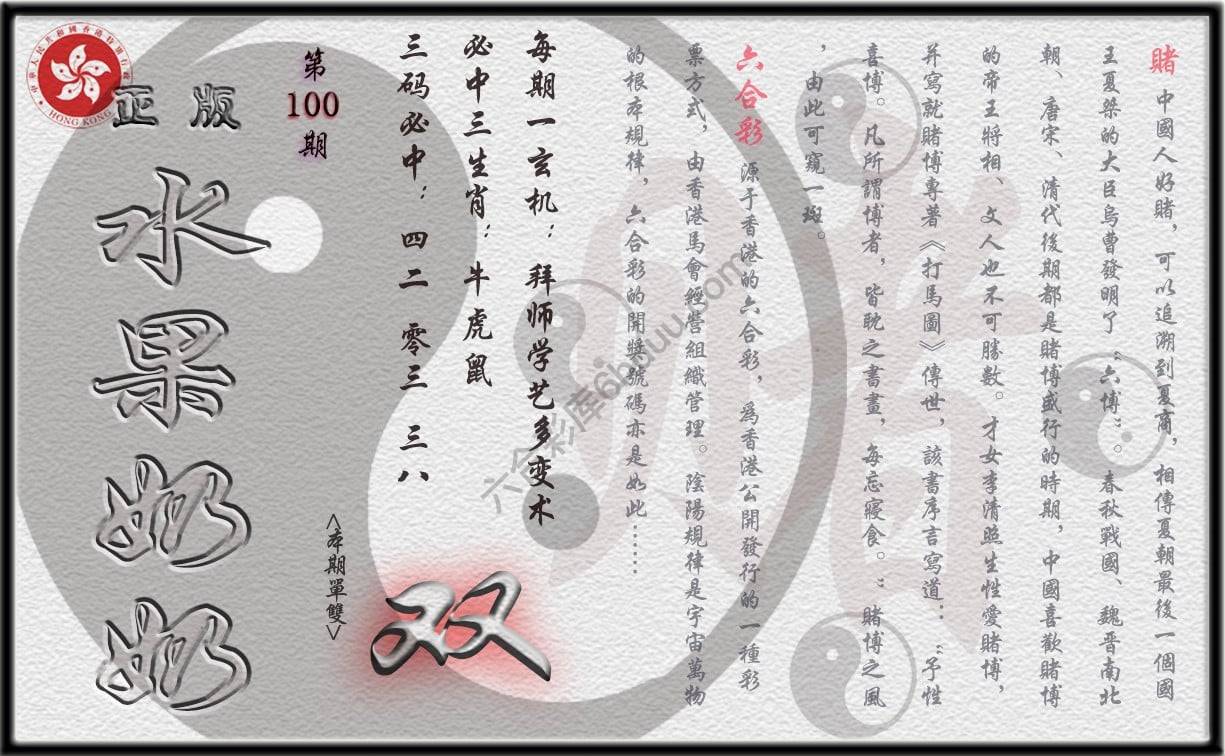 賭 中國人好賭，可以追溯到夏商，相傳夏朝最後一個國
王夏桀的大臣烏曹發明了“六博”。春秋戰國、魏晋南北
朝、唐宋、清代後期都是賭博盛行的時期，中國喜歡賭博
的帝王將相、文人也不可勝數。才女李清照生性愛賭博，
并寫就賭博專著《打馬圖》傳世，該書序言寫道：“予性
喜博。凡所謂博者，皆耽之書畫，每忘寢食。”賭博之風
，由此可窺一斑。
六合彩 源于香港的六合彩，爲香港公開發行的一種彩
票方式，由香港馬會經營組織管理。陰陽規律是宇宙萬物
的根本規律，六合彩的開獎號碼亦是如此……
每期一玄机：拜师学艺多变术
必中三生肖：牛虎鼠
三码必中：四二 零三 三八
双
<本期單雙>
第
100
期
正版
水果奶奶
中華人民共和國香港特別行政區
HONG KONG
六合彩库6huuu.com